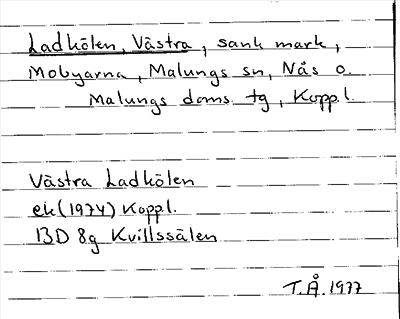 Ladkölen, Västra, sank mark,
Mobyarna, Malungs sn, Nås o.
Malungs doms. tg, Koppl.
Västra Ladkölen
ek (1974) Koppl.
13D 8g Kvillssälen
T.Å. 1977